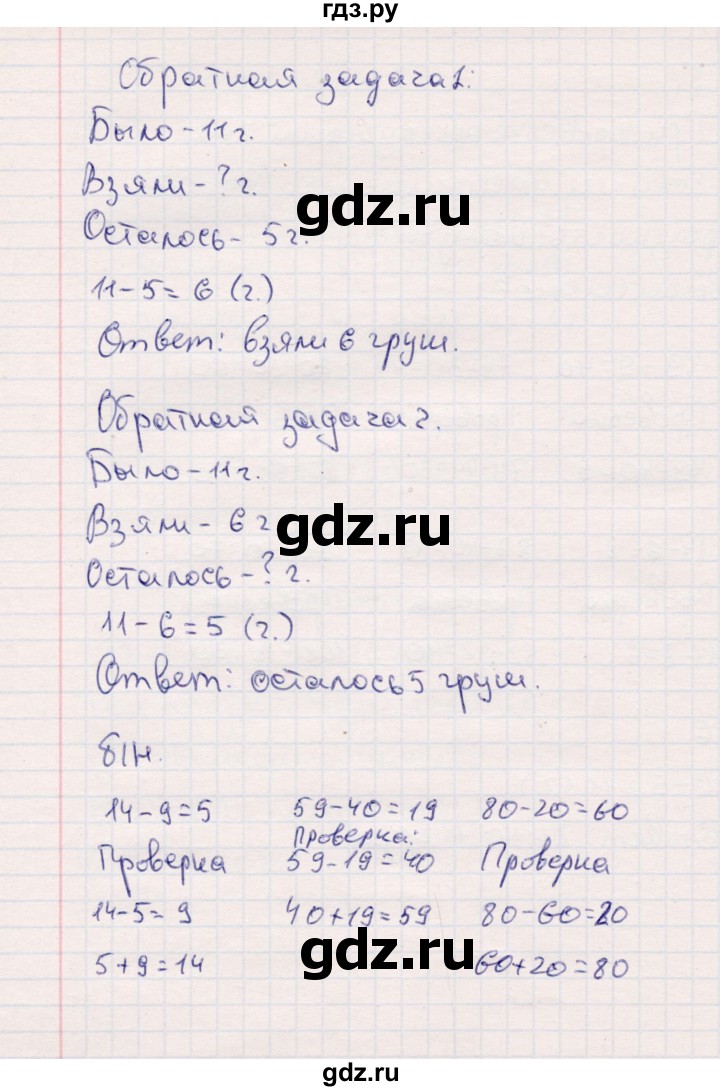 гдз.ру
Обратная задача 1:
Было - 11 г.
Взяли - ? г.
gdz.ru
Осталось - 5 г.
11 - 5 = 6 (г.)
Ответ: взяли 6 груш.
Обратная задача 2.
Было - 11 г.
Взяли - 6 г
gdz.ru
Осталось - ? г.
11 - 6 = 5 (г.)
Ответ: осталось 5 груш.
14 - 9 = 5 59 - 40 = 19 80 - 20 = 60
Проверка Проверка: 59 - 19 = 40 Проверка
14 - 5 = 9 40 + 19 = 59 80 - 60 = 20
gdz.ru
5 + 9 = 14 60 + 20 = 80
gdz.ru